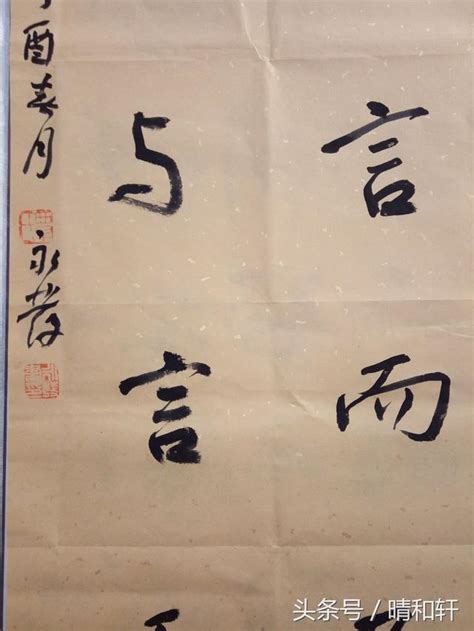 言而
与言
酉春月
永
头条号 / 晴和轩